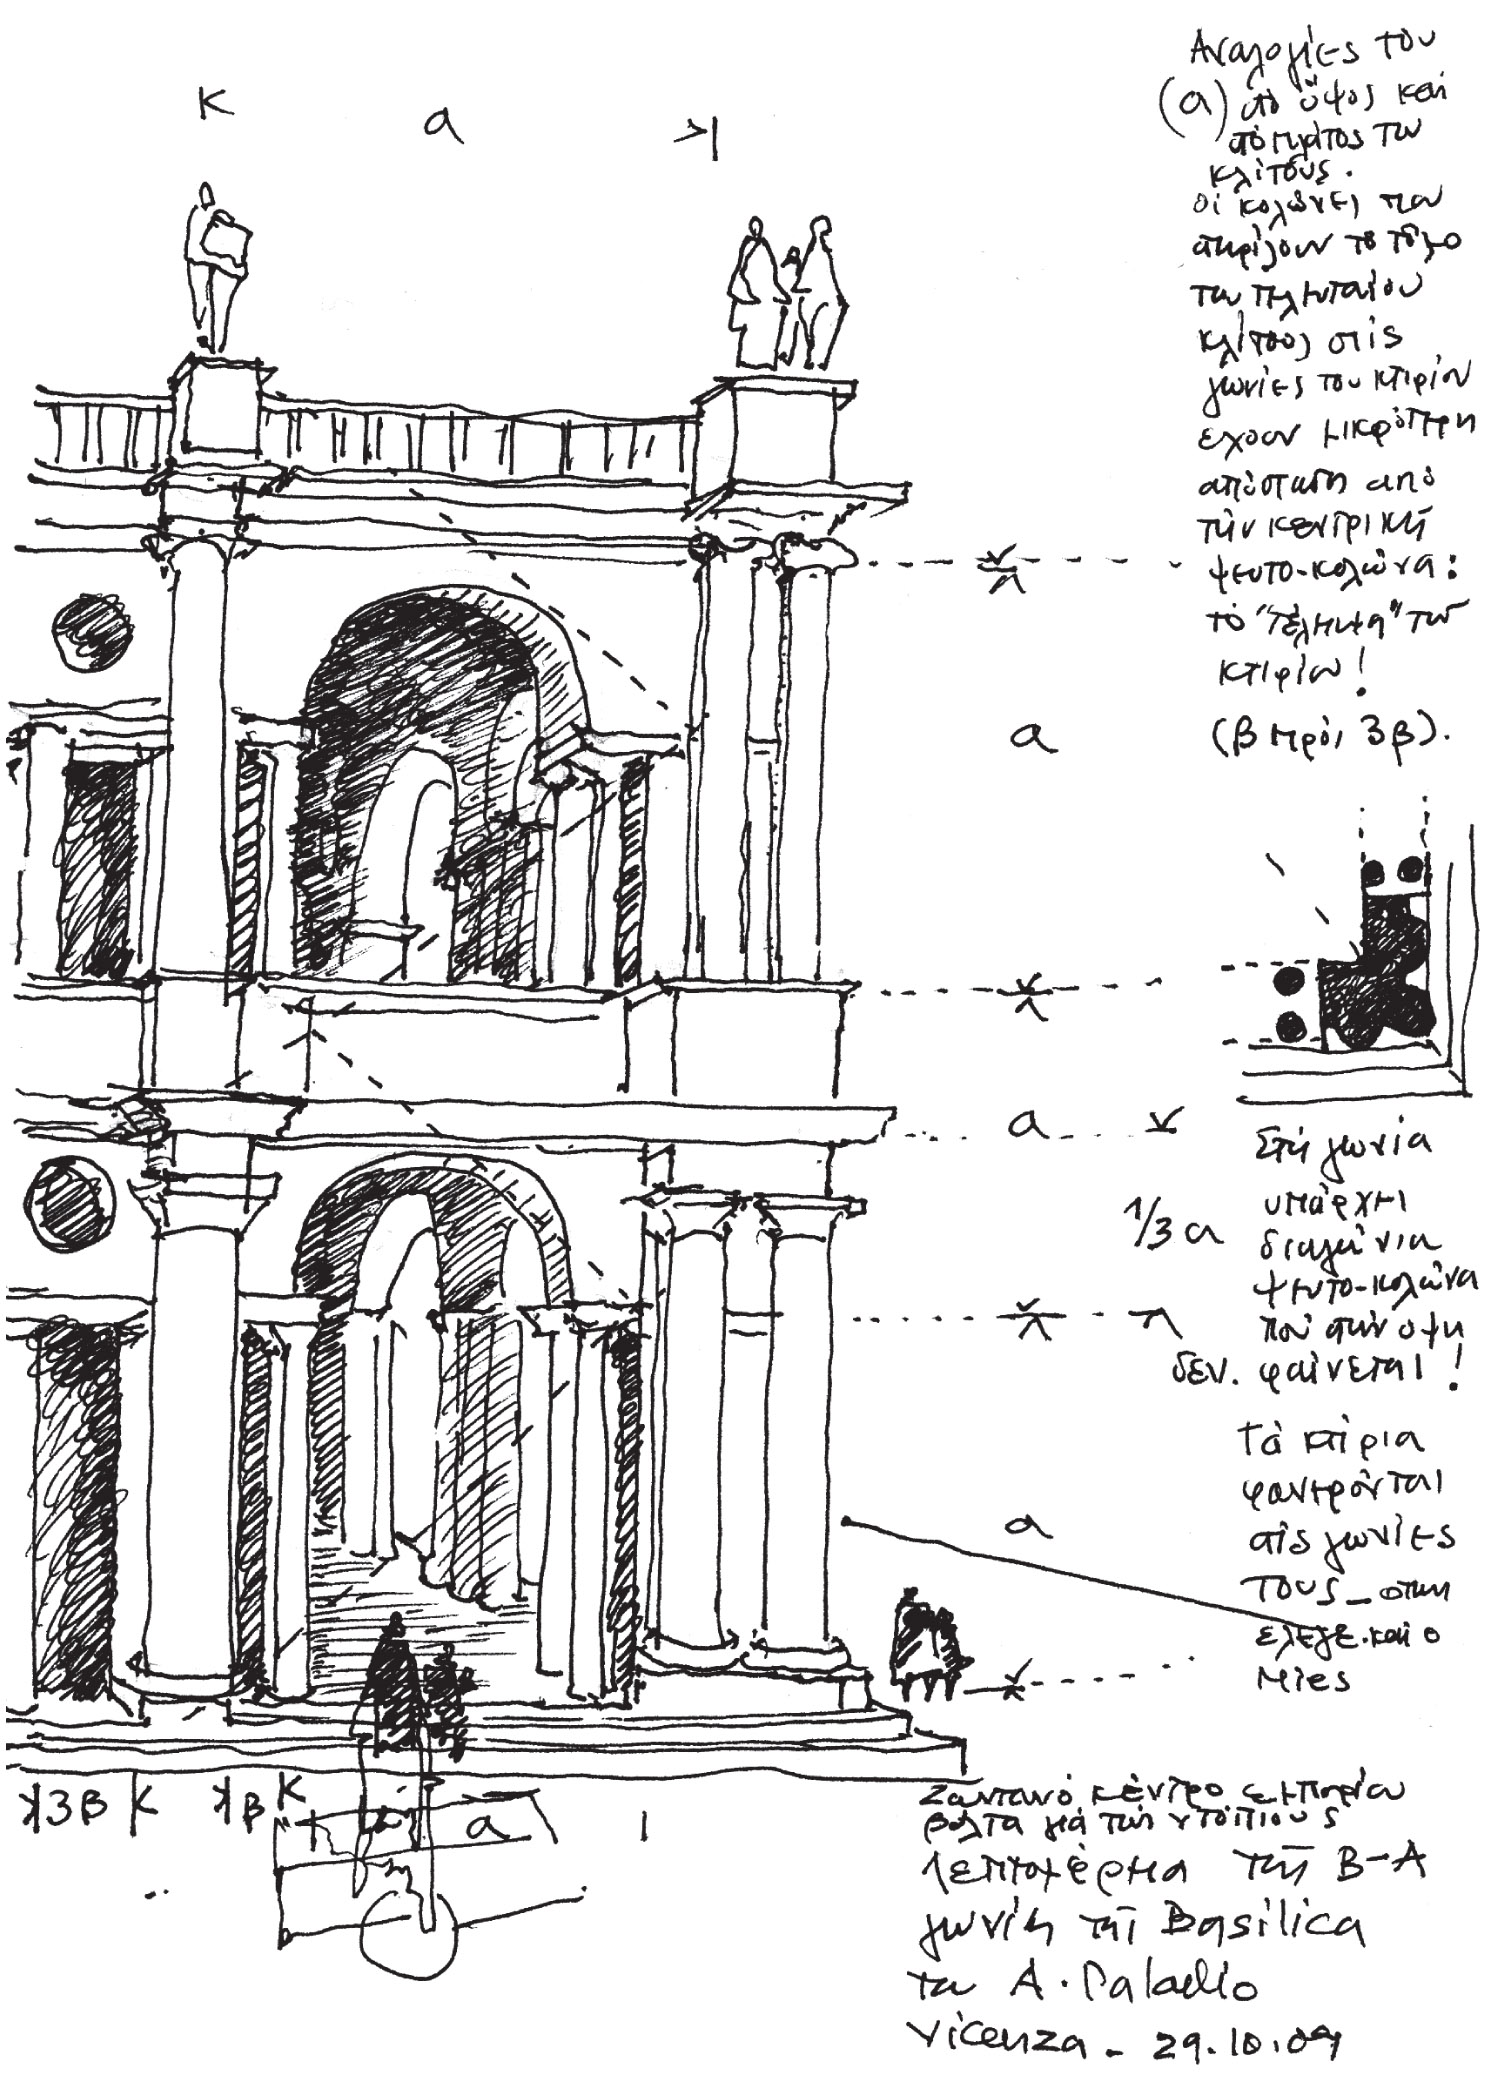 κ α
Αναλογίες του
(α) στό ύψος και
στό πλάτος του
κλίτους.
οι κολώνες που
στηρίζουν το τόξο
του τελευταίου
κλίτους στις
γωνίες του κτιρίου
έχουν μικρότερη
απόσταση από
τήν κεντρική
ψευτο-κολώνα:
τό "τέλειωμα" του
κτιρίου!
(β πρός 3β).
α
α
1/3 α
Στή γωνία
υπάρχει
διαγώνια
ψευτο-κολώνα
πού στήν όψη
δεν. φαίνεται!
Τά κτίρια
φανερώνται
στίς γωνίες
τους - όπως
έλεγε και ο
Mies
α
3β β
α
Ζωντανό κέντρο εμπορίου
βόλτα γιά τούς ντόπιους
Λεπτομέρεια τής Β-Α
γωνίας τής Basilica
του A. Palladio
Vicenza - 29.10.09